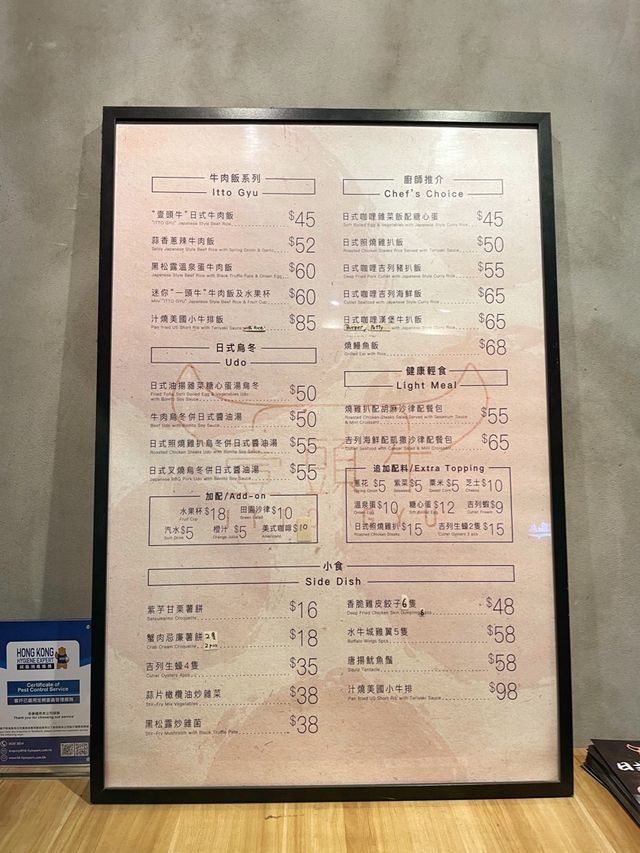 牛肉飯系列
Itto Gyu
"壹頭牛"日式牛肉飯 $45
"ITTO GYU" Japanese Style Beef Rice
蒜香蔥辣牛肉飯 $52
Spicy Japanese Style Beef Rice with Spring Onion & Garlic
黑松露溫泉蛋牛肉飯 $60
Japanese Style Beef Rice with Black Truffle Pate & Onsen Egg
迷你"一頭牛"牛肉飯及水果杯 $60
Mini "ITTO GYU" Japanese Style Beef Rice & Fruit Cup
汁燒美國小牛排飯 $85
Pan fried US Short Rib with Teriyaki Sauce with Rice
日式烏冬
Udo
日式油揚雜菜糖心蛋湯烏冬 $50
Fried Tofu, Soft Boiled Egg & Vegetables Udo
with Bonito Soy Sauce
牛肉烏冬併日式醬油湯 $50
Beef Udo with Bonito Soy Sauce
日式照燒雞扒烏冬併日式醬油湯 $55
Roasted Chicken Steaks Udo with Bonito Soy Sauce
日式叉燒烏冬併日式醬油湯 $55
Japanese BBQ Pork Udo with Bonito Soy Sauce
加配/Add-on
水果杯 $18 田園沙律 $10
Fruit Cup Green Salad
汽水 $5 橙汁 $5 美式咖啡 $10
Soft Drink Orange Juice Americano
廚師推介
Chef's Choice
日式咖哩雜菜飯配糖心蛋 $45
Soft Boiled Egg & Vegetables with Japanese Style Curry Rice
日式照燒雞扒飯 $50
Roasted Chicken Steaks Rice Served with Teriyaki Sauce
日式咖哩吉列豬扒飯 $55
Deep Fried Pork Cutlet with Japanese Style Curry Rice
日式咖哩吉列海鮮飯 $65
Cutlet Seafood with Japanese Style Curry Rice
日式咖哩漢堡牛扒飯 $65
Burger Patty with Japanese Style Curry Rice
燒鰻魚飯 $68
Grilled Eel with Rice
健康輕食
Light Meal
燒雞扒配胡麻沙律配餐包 $55
Roasted Chicken Steaks Salad Served with Sesamum Sauce
& Mini Croissant
吉列海鮮配凱撒沙律配餐包 $65
Cutlet Seafood with Caesar Salad & Mini Croissant
追加配料/Extra Topping
蔥花 $5 紫菜 $5 粟米 $5 芝士 $10
Spring Onion Seaweed Sweet Corn Cheese
溫泉蛋 $10 糖心蛋 $12 吉列蝦 $9
Onsen Egg Soft Boiled Egg Cutlet Prawn
日式照燒雞扒 $15 吉列生蠔2隻 $15
Roasted Chicken Steaks Cutlet Oysters 2 pcs
小食
Side Dish
紫芋甘栗薯餅 $16
Satsumaimo Croquette
蟹肉忌廉薯餅 2隻 $18
Crab Cream Croquette 2pcs
吉列生蠔4隻 $35
Cutlet Oysters 4pcs
蒜片橄欖油炒雜菜 $38
Stir-Fry Mix Vegetables
黑松露炒雜菌 $38
Stir-Fry Mushroom with Black Truffle Pate
香脆雞皮餃子6隻 $48
Deep Fried Chicken Skin Dumpling 6
水牛城雞翼5隻 $58
Buffalo Wings 5pcs
唐揚魷魚鬚 $58
Squid Tentacle
汁燒美國小牛排 $98
Pan fried US Short Rib with Teriyaki Sauce
HONG KONG
HYGIENE EXPERT
Certificate of
Pest Control Service
Thank you for choosing our service